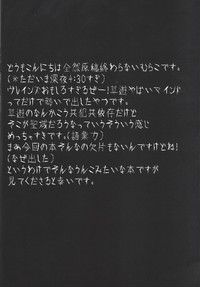 どうもこんにちは全然原稿終わらないむらこです。
(※ただいま深夜4:30すぎ)
ヴレインズおもしろすぎるぜー!草遊やばいマインド
ってだけで勢いで出したやつです。
草遊のなんかこう共犯共依存だけど
そこが聖域だろうなっていうそういう感じ
めっちゃすきです。(語彙力)
まあ今回の本そんなの欠片もないんですけどね!
(なぜ出した)
というわけでそんなうんこみたいな本ですが
見てくださると幸いです。